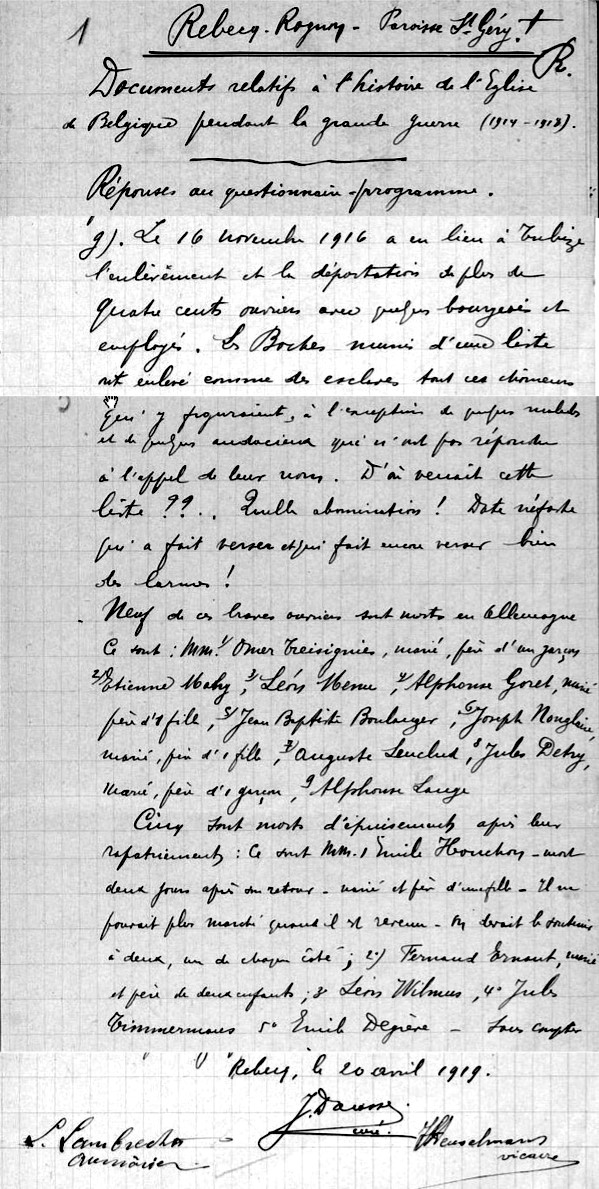 1 Rebecq-Rognon - Paroisse St Géry. †
R.
Documents relatifs à l'histoire de l'Eglise
de Belgique pendant la grande guerre (1914-1918).
Réponses au questionnaire-programme.
g). Le 16 novembre 1916 a eu lieu à Tubize
l'enlèvement et la déportation de plus de
quatre cents ouvriers avec quelques bourgeois et
employés. Les Boches munis d'une liste
ont enlevé comme des esclaves tout ces chômeurs
qui y figuraient, à l'exception de quelques malades
et de quelques audacieux qui n'ont pas répondu
à l'appel de leur nom. D'où venait cette
liste ??.. Quelle abomination ! Date néfaste
qui a fait verser et qui fait encore verser bien
des larmes !
Neuf de ces braves ouvriers sont morts en Allemagne
Ce sont : MM. 1/ Omer Treisignies, marié, père d'un garçon
2/ Etienne Maby, 3/ Léon Menu, 4/ Alphonse Goret, marié
père d'1 fille, 5/ Jean Baptiste Boulanger, 6/ Joseph
marié, père d'1 fille, 7/ Auguste 8/ Jules Detry,
marié, père d'1 garçon, 9 Alphonse Lauge
Cinq sont morts d'épuisement après leur
rapatriement : Ce sont MM. 1 Emile Houchon - mort
deux jours après son retour - marié et père d'une fille - Il ne
pouvait plus marché quand il est revenu - On devait le soutenir
à deux, un de chaque côté ; 2°) Fernand Ernout, marié
et père de deux enfants ; 3° Léon Wilmus, 4° Jules
Timmermans 5° Emile Degière - Sans compter
Rebecq, le 20 avril 1919.
J. Dausse
curé.
L. Lambrechts
aumônier
Heuselmans
vicaire